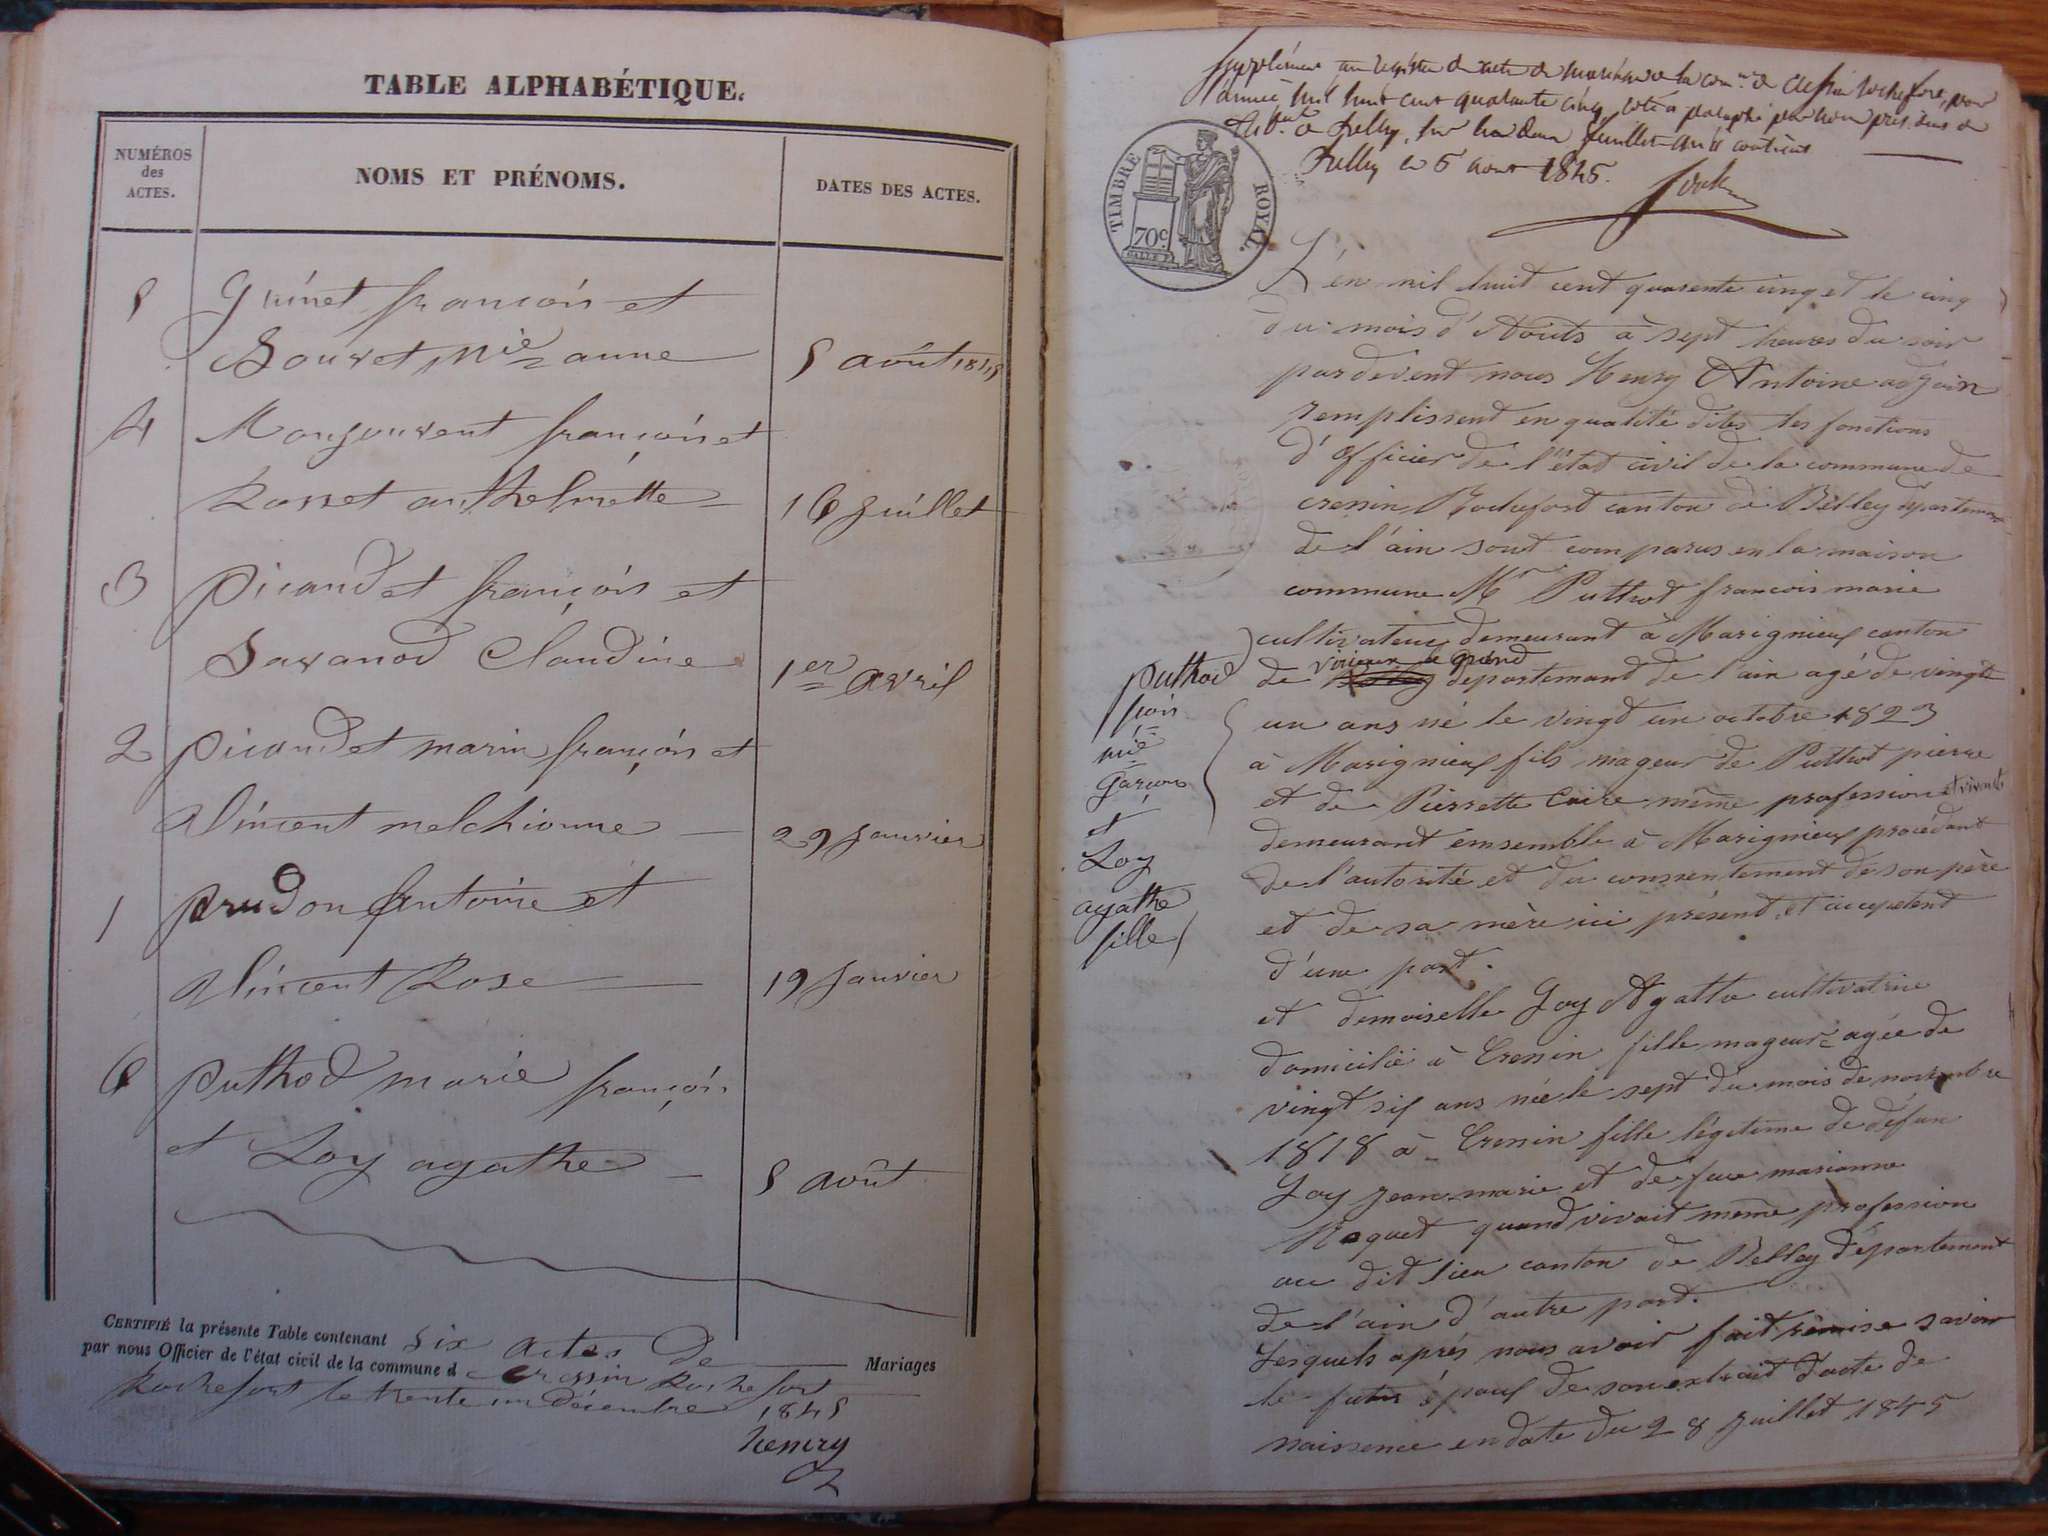 TABLE ALPHABÉTIQUE.
NUMÉROS
des
ACTES.
NOMS ET PRÉNOMS.
DATES DES ACTES.
5 Grinet françois et
Bouvet Mie anne 5 août 1845
4 Monjouvent françois et
Rosset anthelmette 16 Juillet
3 Picandet françois et
Savanod Claudine 1er avril
2 Picandet marin françois et
Vincent melchionne 29 Janvier
1 Prudon Antoine et
Vincent Rose 19 Janvier
6 Puthod marie françois
et Loy agathe 5 août
CERTIFIÉ la présente Table contenant six actes de Mariages
par nous Officier de l'état civil de la commune d cressin Rochefort
Rochefort le trente un Décembre 1845
henry
Supplément au registre de mariage de la comne de Cressin Rochefort, pour
l'année mil huit cent quarante cinq, coté et paraphé par nous président du
Belley, sur deux feuillets
Belley le 5 aout 1845.
TIMBRE ROYAL.
70c.
L'én mil huit cent quarente cinq et le cinq
du mois d'Aouts à sept heures du soir
pardevent nous Henry Antoine adjoin
remplissent en qualité dites les fonctions
d'officier de l'état civil de la commune de
cressin Rochefort canton de Belley departement
de l'ain sont comparus en la maison
commune Mr Puthod francois marie
cultivateur demeurant à Marignieux canton
virieux le grand
de departemand de l'ain agé de vingt
un ans né le vingt un octobre 1823
à Marignieux fils mageur de Puthod pierre
et de Pierrette Caire même profession et vivent
demeurant emsemble à Marignieux procédant
de l'autorité et du conssentement de son père
et de sa mère ici présent et accepetent
d'une part.
et demoiselle Loy Agathe cultivatrice
domicilié à Cressin fille mageur agée de
vingt six ans née le sept du mois de novembre
1818 à Cressin fille légitime de défun
Loy Jean marie et de feue marianne
Noquet quand vivait même profession
au dit lieu canton de Belley département
de l'ain d'autre part.
Lesquels aprés nous avoir fait remise savoir
le futur époux de son extrait d'acte de
naissence en date du 28 Juillet 1845
Puthod
fçois
mie
garçon
et
Loy
agathe
fille